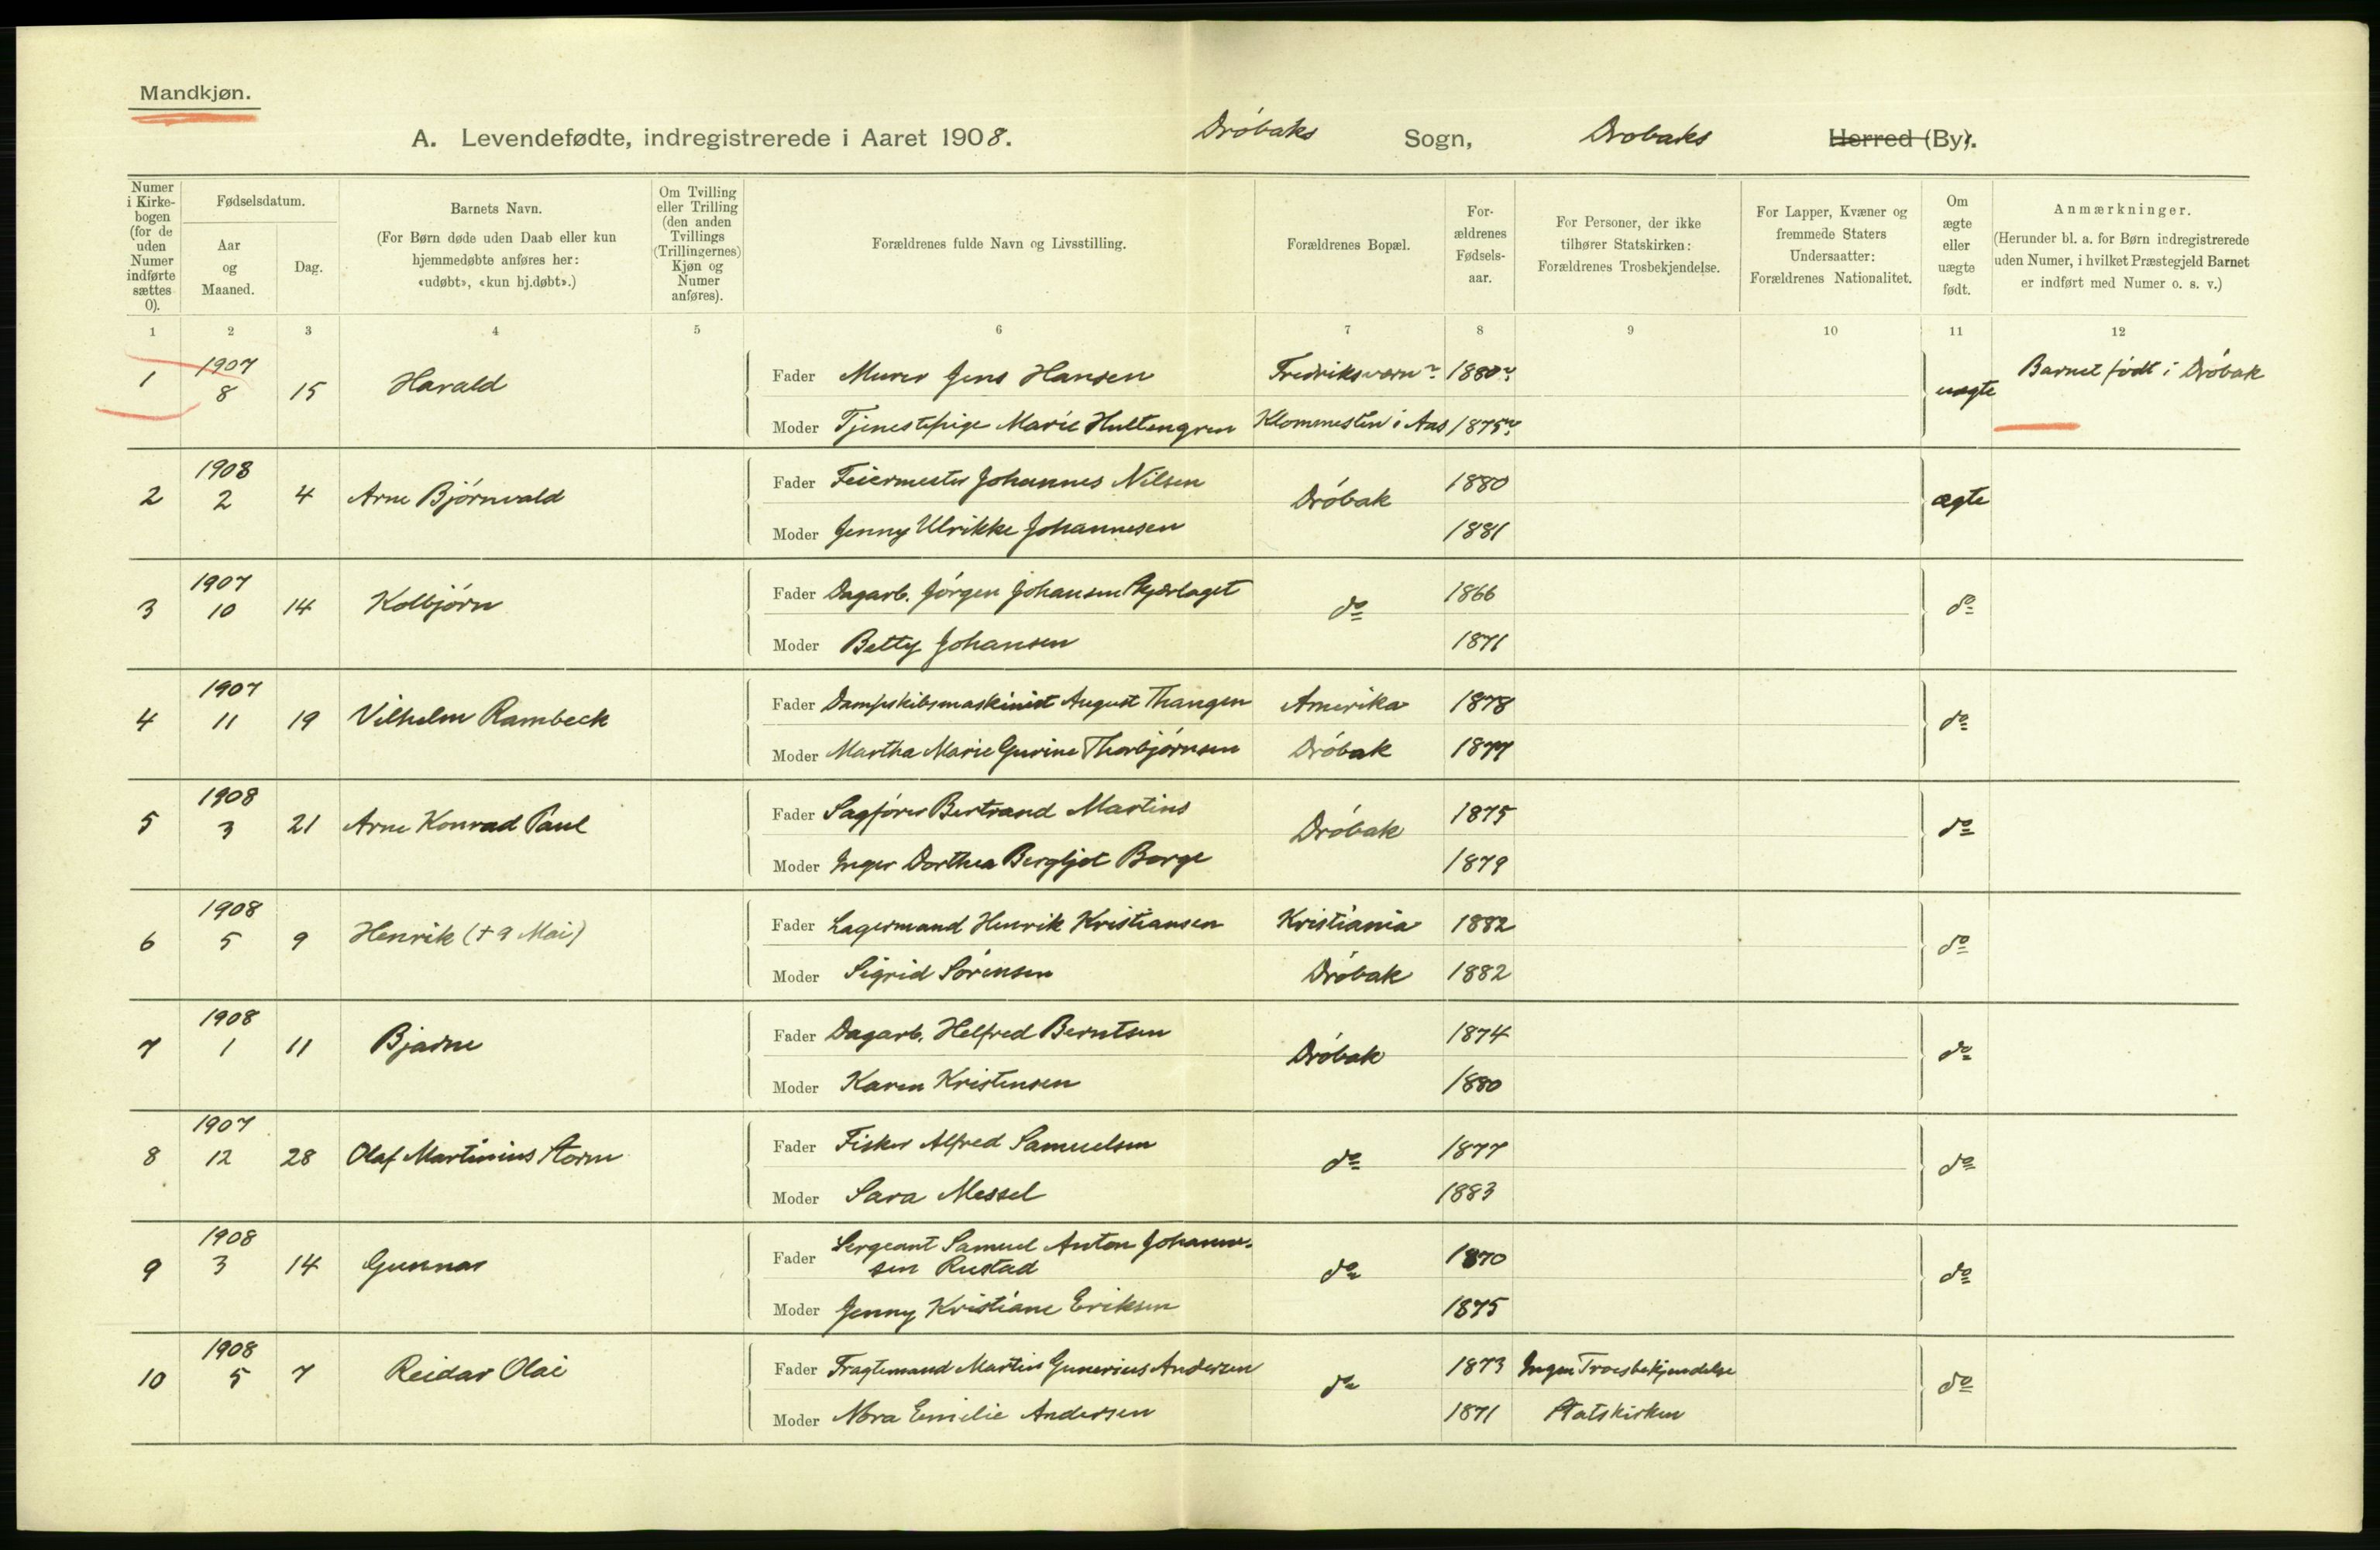 Mandkjøn.
A. Levendefødte, indregistrerede i Aaret 1908. Drøbaks Sogn, Drøbaks Herred (By).
Numer i Kirkebogen (for de uden Numer indførte sættes 0).
Fødselsdatum.
Aar og Maaned.
Dag.
Barnets Navn.
(For Børn døde uden Daab eller kun hjemmedøbte anføres her: «udøbt», «kun hj.døbt».)
Om Tvilling eller Trilling (den anden Tvillings (Trillingernes) Kjøn og Numer anføres).
Forældrenes fulde Navn og Livsstilling.
Forældrenes Bopæl.
Forældrenes Fødselsaar.
For Personer, der ikke tilhører Statskirken: Forældrenes Trosbekjendelse.
For Lapper, Kvæner og fremmede Staters Undersaatter: Forældrenes Nationalitet.
Om ægte eller uægte født.
Anmærkninger.
(Herunder bl. a. for Børn indregistrerede uden Numer, i hvilket Præstegjeld Barnet er indført med Numer o. s. v.)
1 2 3 4 5 6 7 8 9 10 11 12
1 1907 8 15 Harald Fader Murer Jens Hansen Fredriksværn ?. 1880?. uægte Barnet født i Drøbak
Moder Tjenestepige Marie Hultengren Klommesten i Aas 1875?.
2 1908 2 4 Arne Bjørnvald Fader Feiermester Johannes Nilsen Drøbak 1880 ægte
Moder Jenny Ulrikke Johannesen 1881
3 1907 10 14 Kolbjørn Fader Dagarb. Jørgen Johansen Skjærlaget do 1866 do
Moder Betty Johansen 1871
4 1907 11 19 Vilhelm Rambeck Fader Dampskibsmaskinist August Thangen Amerika 1878 do
Moder Martha Marie Gurine Thorbjørnsen Drøbak 1877
5 1908 3 21 Arne Konrad Paul Fader Sagfører Bertrand Martins Drøbak 1875 do
Moder Inger Dorthea Bergljot Borge 1879
6 1908 5 9 Henrik (+ 9 Mai) Fader Lagermand Henrik Kristiansen Kristiania 1882 do
Moder Sigrid Sørensen Drøbak 1882
7 1908 1 11 Bjarne Fader Dagarb. Helfred Berntsen Drøbak 1874 do
Moder Karen Kristensen 1880
8 1907 12 28 Olaf Martinius Storm Fader Fisker Alfred Samuelsen do 1877 do
Moder Sara Messel 1883
9 1908 3 14 Gunnar Fader Sergeant Samuel Anton Johanne-
sen Rustad do 1870 do
Moder Jenny Kristiane Eriksen 1875
10 1908 5 7 Reidar Olai Fader Fragtemand Martin Gunerius Andersen do 1873 Ingen Troesbekjendelse do
Moder Nora Emilie Andersen 1871 Statskirken